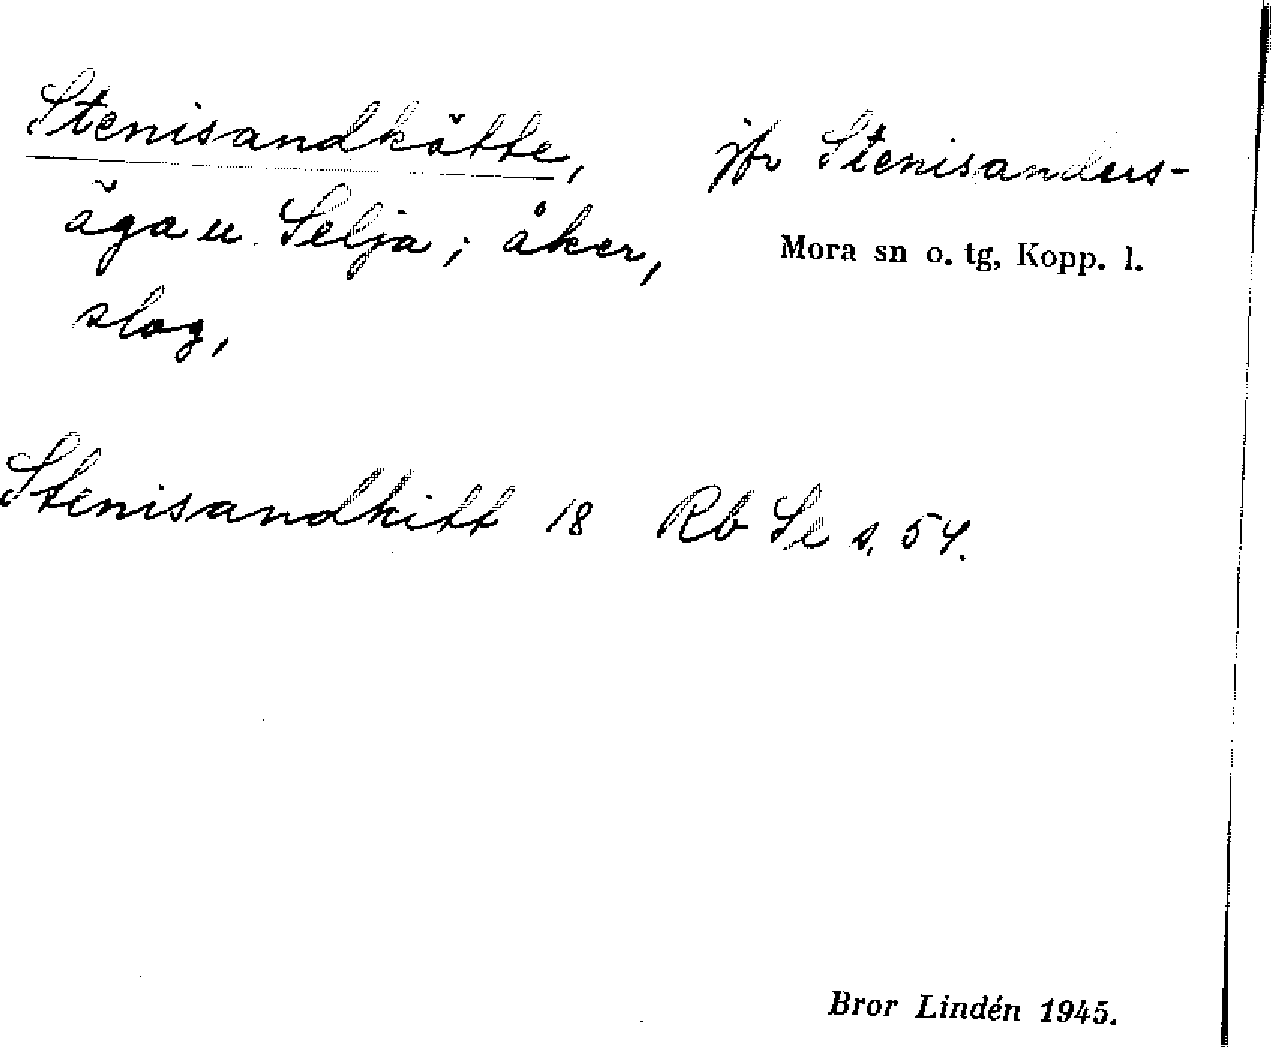 Stenisandkötte, jfr Stenisanders-
äga u. Selja; åker,
Mora sn o. tg, Kopp. l.
slog,
Stenisandkitt 18 Rb Se s. 54.
Bror Lindén 1945.